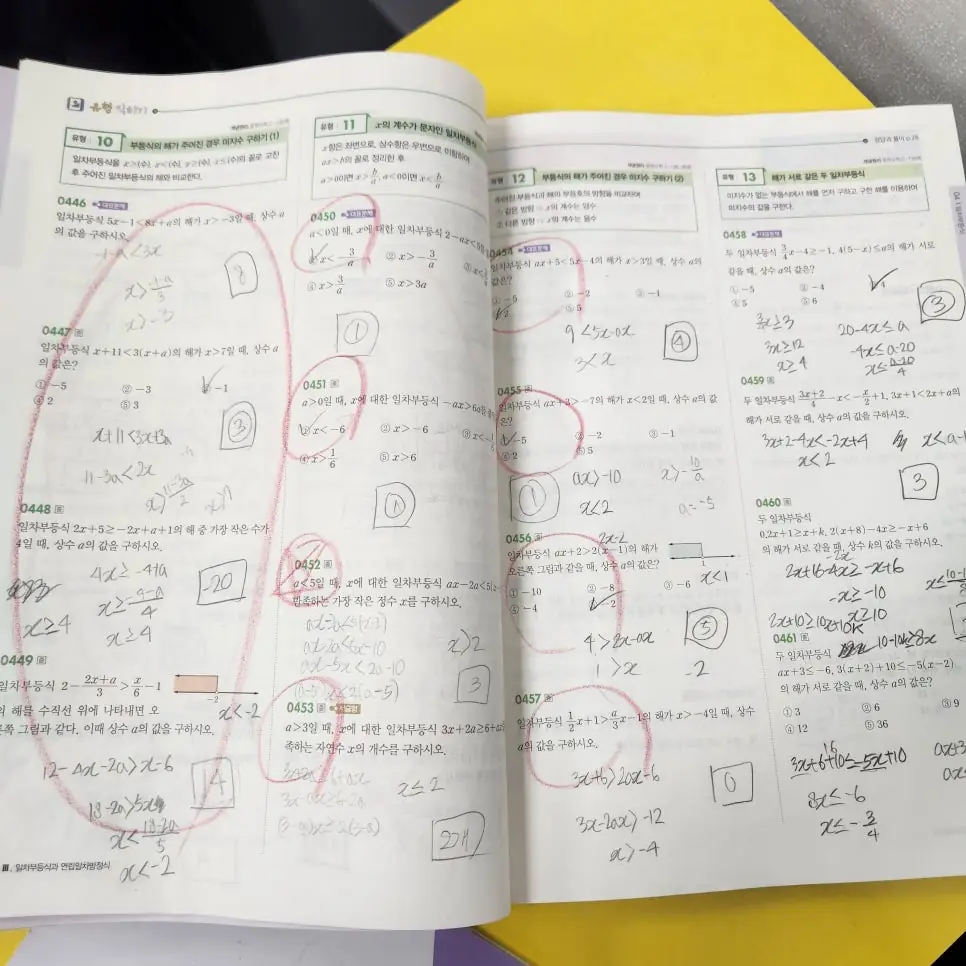 유형 익히기
유형 10 부등식의 해가 주어진 경우 미지수 구하기 (1)
일차부등식을 x>(수), x<(수), x≥(수), x≤(수)의 꼴로 고친
후 주어진 일차부등식의 해와 비교한다.
0446 대표문제
일차부등식 5x-1<8x+a의 해가 x>-3일 때, 상수 a
의 값을 구하시오.
-1-a<3x
x>
x>-3
8
0447
일차부등식 x+11<3(x+a)의 해가 x>7일 때, 상수 a
의 값은?
① -5 ② -3 ③ -1
④ 2 ⑤ 3
x+11<3x+3a
③
11-3a<2x
x> 11-3a/2
0448
일차부등식 2x+5≥-2x+a+1의 해 중 가장 작은 수가
4일 때, 상수 a의 값을 구하시오.
4x≥-4+a
-20
x≥4
x≥4
0449
일차부등식 2-(2x+a)/3>x/6-1
의 해를 수직선 위에 나타내면 오
른쪽 그림과 같다. 이때 상수 a의 값을 구하시오.
-2
x<-2
12-4x-2a>x-6
14
18-2a>5x
x<(18-2a)/5
x<-2
Ⅲ. 일차부등식과 연립일차방정식
유형 11 x의 계수가 문자인 일차부등식
x항은 좌변으로, 상수항은 우변으로 이항하여
ax>b의 꼴로 정리한 후
a>0이면 x>b/a, a<0이면 x<b/a
0450 대표문제
a<0일 때, x에 대한 일차부등식 2-ax<5의
① x<-3/a ② x>-3/a
④ x>3/a ⑤ x>3a
①
0451
a>0일 때, x에 대한 일차부등식 -ax>6a
① x<-6 ② x>-6
④ x>1/6 ⑤ x>6
①
0452
a<5일 때, x에 대한 일차부등식 ax-2a<5
만족하는 가장 작은 정수 x를 구하시오.
ax-2a<5x-10
x>2
ax-5x<2a-10
3
0453
a>3일 때, x에 대한 일차부등식 3x+2a≥6+ax
족하는 자연수 x의 개수를 구하시오.
x≤2
3x-ax≥6-2a
2개
유형 12 부등식의 해가 주어진 경우 미지수 구하기 (2)
주어진 부등식과 해의 부등호의 방향을 비교하여
① 같은 방향 ⇨ x의 계수는 양수
② 다른 방향 ⇨ x의 계수는 음수
0454 대표문제
일차부등식 ax+5<5x-4의 해가 x>3일 때, 상수 a의
값은?
① -5 ② -2 ③ -1
④ 2 ⑤ 5
9<5x-ax
④
3<x
0455
일차부등식 ax+3>-7의 해가 x<2일 때, 상수 a의 값
은?
① -5 ② -2 ③ -1
④ 2 ⑤ 5
①
ax>-10
x>-10/a
x<2
a=-5
0456
2x-2
일차부등식 ax+2>2(x-1)의 해가
오른쪽 그림과 같을 때, 상수 a의 값은?
1
① -10 ② -8 ③ -6
④ -4 ⑤ -2
x<1
4>2x-ax
⑤
1>x
-2
0457
일차부등식 1/2x+1>a/3x-1의 해가 x>-4일 때, 상수
a의 값을 구하시오.
3x+6>2ax-6
0
3x-2ax>-12
x>-4
정답과 풀이 p.26
유형 13 해가 서로 같은 두 일차부등식
미지수가 없는 부등식에서 해를 먼저 구하고 구한 해를 이용하여
미지수의 값을 구한다.
0458 대표문제
두 일차부등식 3/4x-4≥-1, 4(5-x)≤a의 해가 서로
같을 때, 상수 a의 값은?
① -5 ② -4
④ 5 ⑤ 6
③
20-4x≤a
3x≥12
-4x≤a-20
x≥4
0459
두 일차부등식 (3x+2)/4-x<-x/2+1, 3x+1<2x+a의
해가 서로 같을 때, 상수 a의 값을 구하시오.
3x+2-4x<-2x+4
x<a-1
x<2
3
0460
두 일차부등식
0.2x+1≥x+k, 2(x+8)-4x≥-x+6
의 해가 서로 같을 때, 상수 k의 값을 구하시오.
2x+16-4x≥-x+6
-x≥-10
x≥10
2x+10≥10x+10k
0461
두 일차부등식
ax+3≤-6, 3(x+2)+10≤-5(x-2)
의 해가 서로 같을 때, 상수 a의 값은?
① 3 ② 6 ③ 9
④ 12 ⑤ 36
16
3x+6+10≤-5x+10
8x≤-6
x≤-3/4